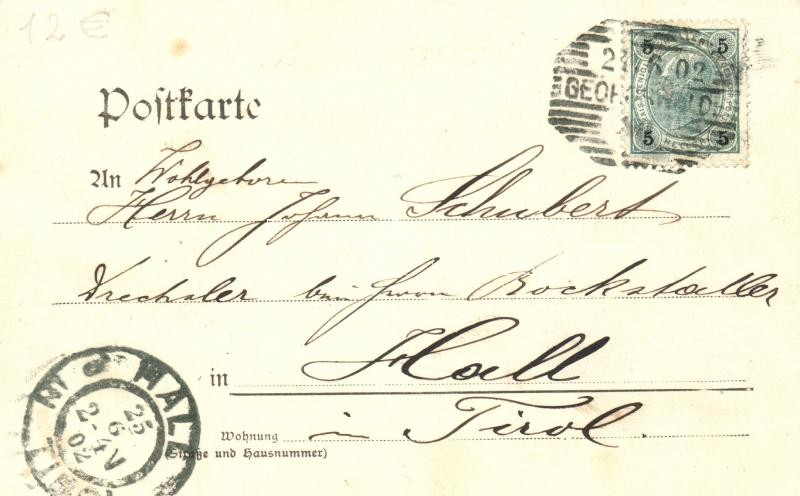 12 €
5 5
22 6 02
GEOR
5 5
Postkarte
An Wohlgeboren
Herrn Johann Schubert
Drechsler beim Herrn Bockstaller
in Hall
Wohnung in Tirol.
(Straße und Hausnummer)
HALL
25
6
2-4V
02